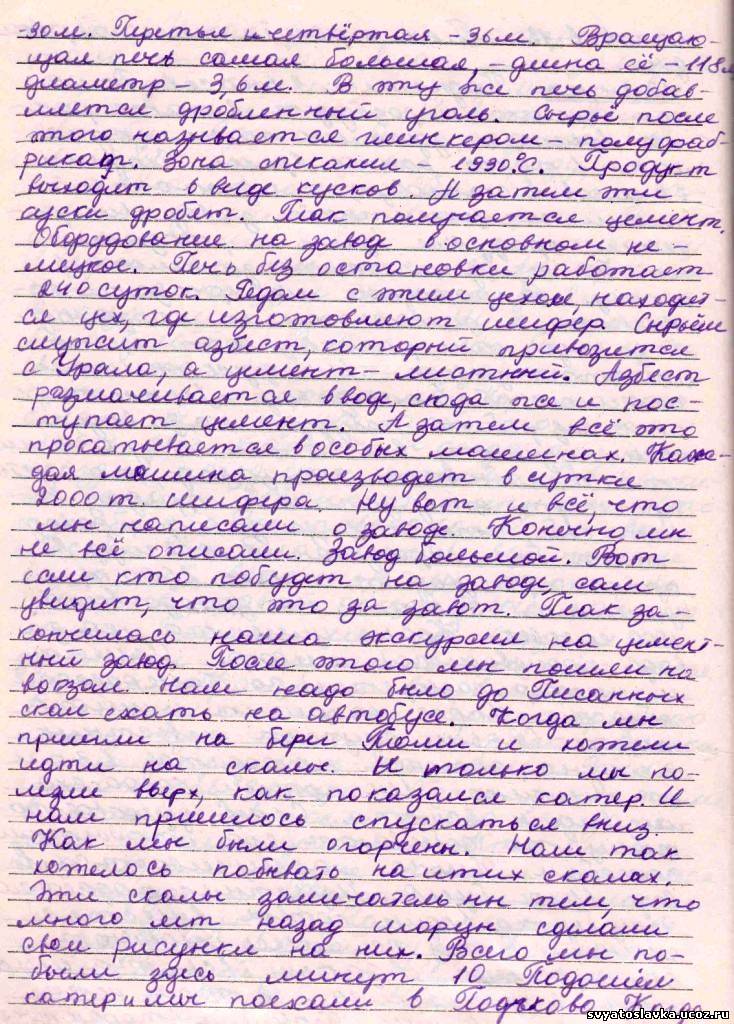 -30м. Третья и четвёртая - 36м. Вращаю-
щая печь самая большая, - длина её - 118м
диаметр - 3,6м. В эту же печь добав-
ляется дробленный уголь. Сырьё после
этого называется глинкером - полуфаб-
рикат. Зона спекания - 1990°С. Продукт
выходит в виде кусков. А затем эти
куски дробят. Так получается цемент.
Оборудование на завод в основном не-
мецкое. Печь без остановки работает
240 суток. Рядом с этим цехом, находит-
ся цех, где изготовляют шифер. Сырьём
служит азбест, который привозится
с Урала, а цемент - местный. Азбест
размачивается в воде, сюда же и пос-
тупает цемент. А затем всё это
прокатывается в особых машинах. Каж-
дая машина производит в сутки
2000т. шифера. Ну вот и всё, что
мы написали о заводе. Конечно мы
не всё описали. Завод большой. Вот
если кто побудет на заводе, сам
увидит, что это за завот. Так за-
кончилась наша экскурсия на цемент-
ный завод. После этого мы пошли на
вокзал. Нам надо было до Писанных
скал ехать на автобусе. Когда мы
пришли на берег Томи и хотели
идти на скалы. И только мы по-
лезли вверх, как показался катер. И
нам пришлось спускаться вниз.
Как мы были огорчены. Нам так
хотелось побывать на этих скалах.
Эти скалы замечательны тем, что
много лет назад шорцы сделали
свои рисунки на них. Всего мы по-
были здесь минут 10. Подошёл
катер и мы поехали в Подъяково. Когда
svyatoslavka.ucoz.ru